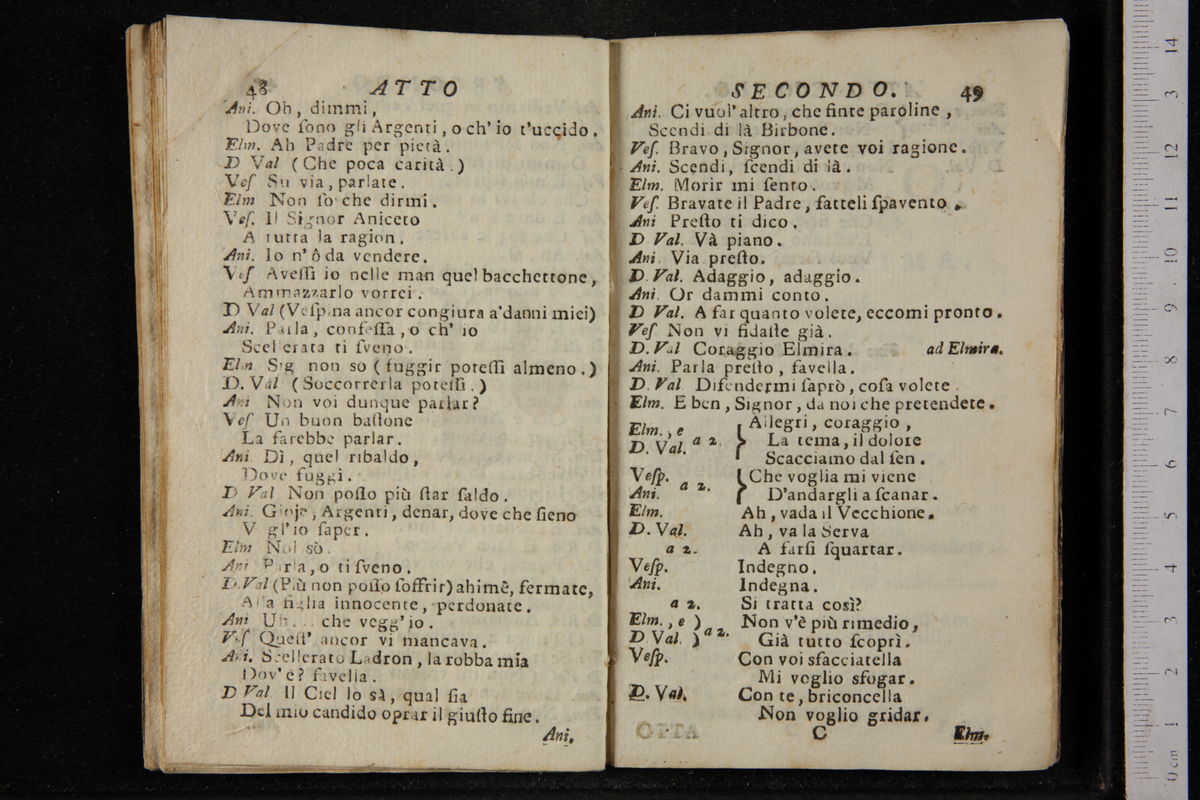 48 ATTO
Ani. Oh, dimmi,
Dove ſono gli Argenti, o ch' io t'uccido.
Elm. Ah Padre per pietà.
D Val (Che poca carità.)
Veſ Su via, parlate.
Elm Non ſo che dirmi.
Veſ. Il Signor Aniceto
A tutta la ragion.
Ani. Io n' ô da vendere.
Veſ Aveſſi io nelle man quel bacchettone,
Ammazzarlo vorrei.
D Val (Veſpina ancor congiura a'danni miei)
Ani. Parla, confeſſa, o ch' io
Scellerata ti ſveno.
Elm Sig non so (fuggir poteſſi almeno.)
D. Val (Soccorrerla poteſſi.)
Ani Non voi dunque parlar?
Veſ Un buon baſtone
La farebbe parlar.
Ani. Dì, quel ribaldo,
Dove fuggì.
D Val Non poſſo più ſtar ſaldo.
Ani. Gioje, Argenti, denar, dove che ſieno
V gl'io ſaper.
Elm Nol sò.
Ani Parla, o ti ſveno.
D. Val (Più non poſſo ſoffrir) ahimè, fermate,
Alla figlia innocente, perdonate.
Ani Uh... che vegg'io.
Veſ Queſt' ancor vi mancava.
Ani. Scellerato Ladron, la robba mia
Dov'è? favella.
D Val Il Ciel lo sà, qual ſia
Del mio candido oprar il giuſto fine.
Ani.
SECONDO. 49
Ani. Ci vuol' altro, che finte paroline,
Scendi di là Birbone.
Veſ. Bravo, Signor, avete voi ragione.
Ani. Scendi, ſcendi di là.
Elm. Morir mi ſento.
Veſ. Bravate il Padre, fatteli ſpavento.
Ani Preſto ti dico.
D Val. Và piano.
Ani. Via preſto.
D. Val. Adaggio, adaggio.
Ani. Or dammi conto.
D Val. A far quanto volete, eccomi pronto.
Veſ Non vi fidaſte già.
D. Val Coraggio Elmira. ad Elmira.
Ani. Parla preſto, favella.
D. Val Difendermi ſaprò, coſa volete
Elm. E ben, Signor, da noi che pretendete.
Elm., e D. Val. a 2. Allegri, coraggio,
La tema, il dolore
Scacciamo dal ſen.
Veſp. Ani. a 2. Che voglia mi viene
D'andargli a ſcanar.
Elm. Ah, vada il Vecchione.
D. Val. Ah, va la Serva
a 2. A farſi ſquartar.
Veſp. Indegno.
Ani. Indegna.
a 2. Si tratta così?
Elm., e D Val. ) a 2. Non v'è più rimedio,
Già tutto ſcoprì.
Veſp. Con voi sfacciatella
Mi voglio sfogar.
D. Val. Con te, briconcella
Non voglio gridar.
C Elm.